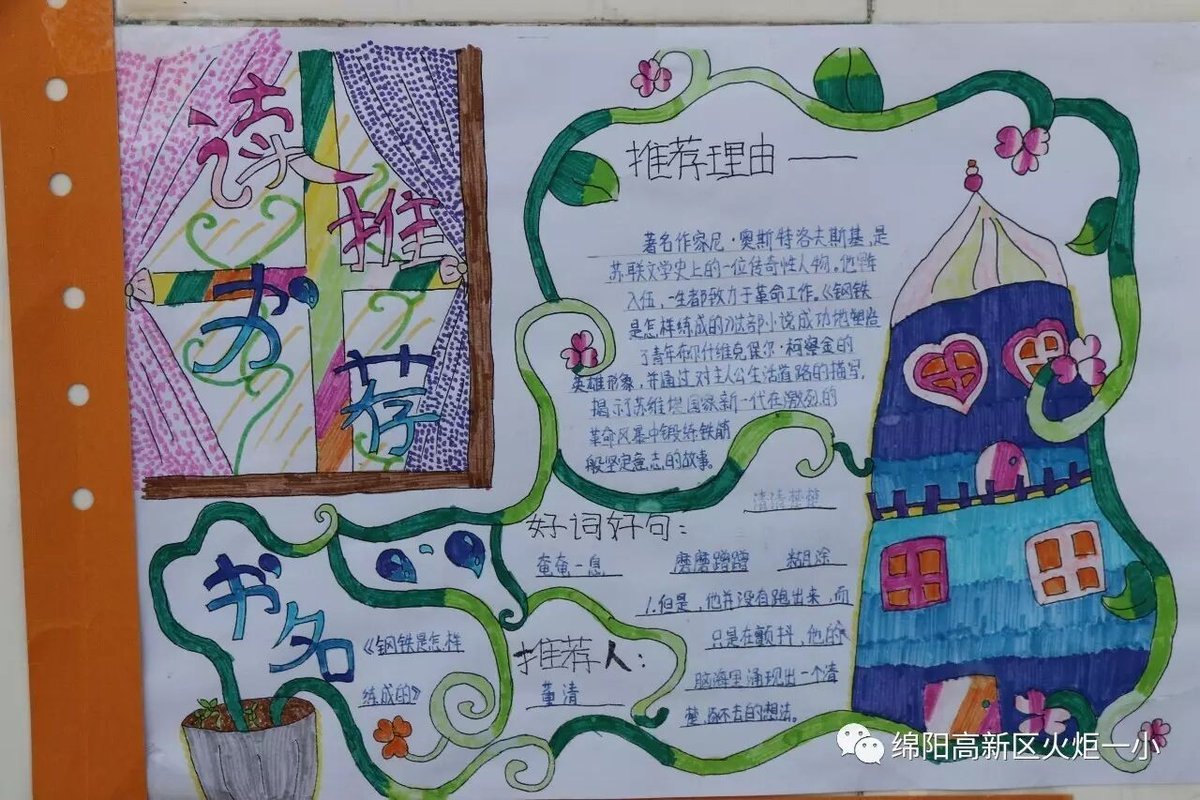 读书推荐
推荐理由——
著名作家尼·奥斯特洛夫斯基,是
苏联文学史上的一位传奇性人物。他
入伍,一生都致力于革命工作。《钢铁
是怎样练成的》这部小说成功地塑造
了青年布尔什维克保尔·柯察金的
英雄形象,并通过对主人公生活道路的描写,
揭示了苏维埃国家新一代在激烈的
革命风暴中锻练铁前
般坚定意志的故事。
清清楚楚
好词好句:
奄奄一息
磨磨蹭蹭
糊涂
1.但是,他并没有跑出来,而
只是在颤抖,他的
脑海里涌现出一个清
楚,不去的想法。
书名
《钢铁是怎样
练成的》
推荐人:
董清
绵阳高新区火炬一小